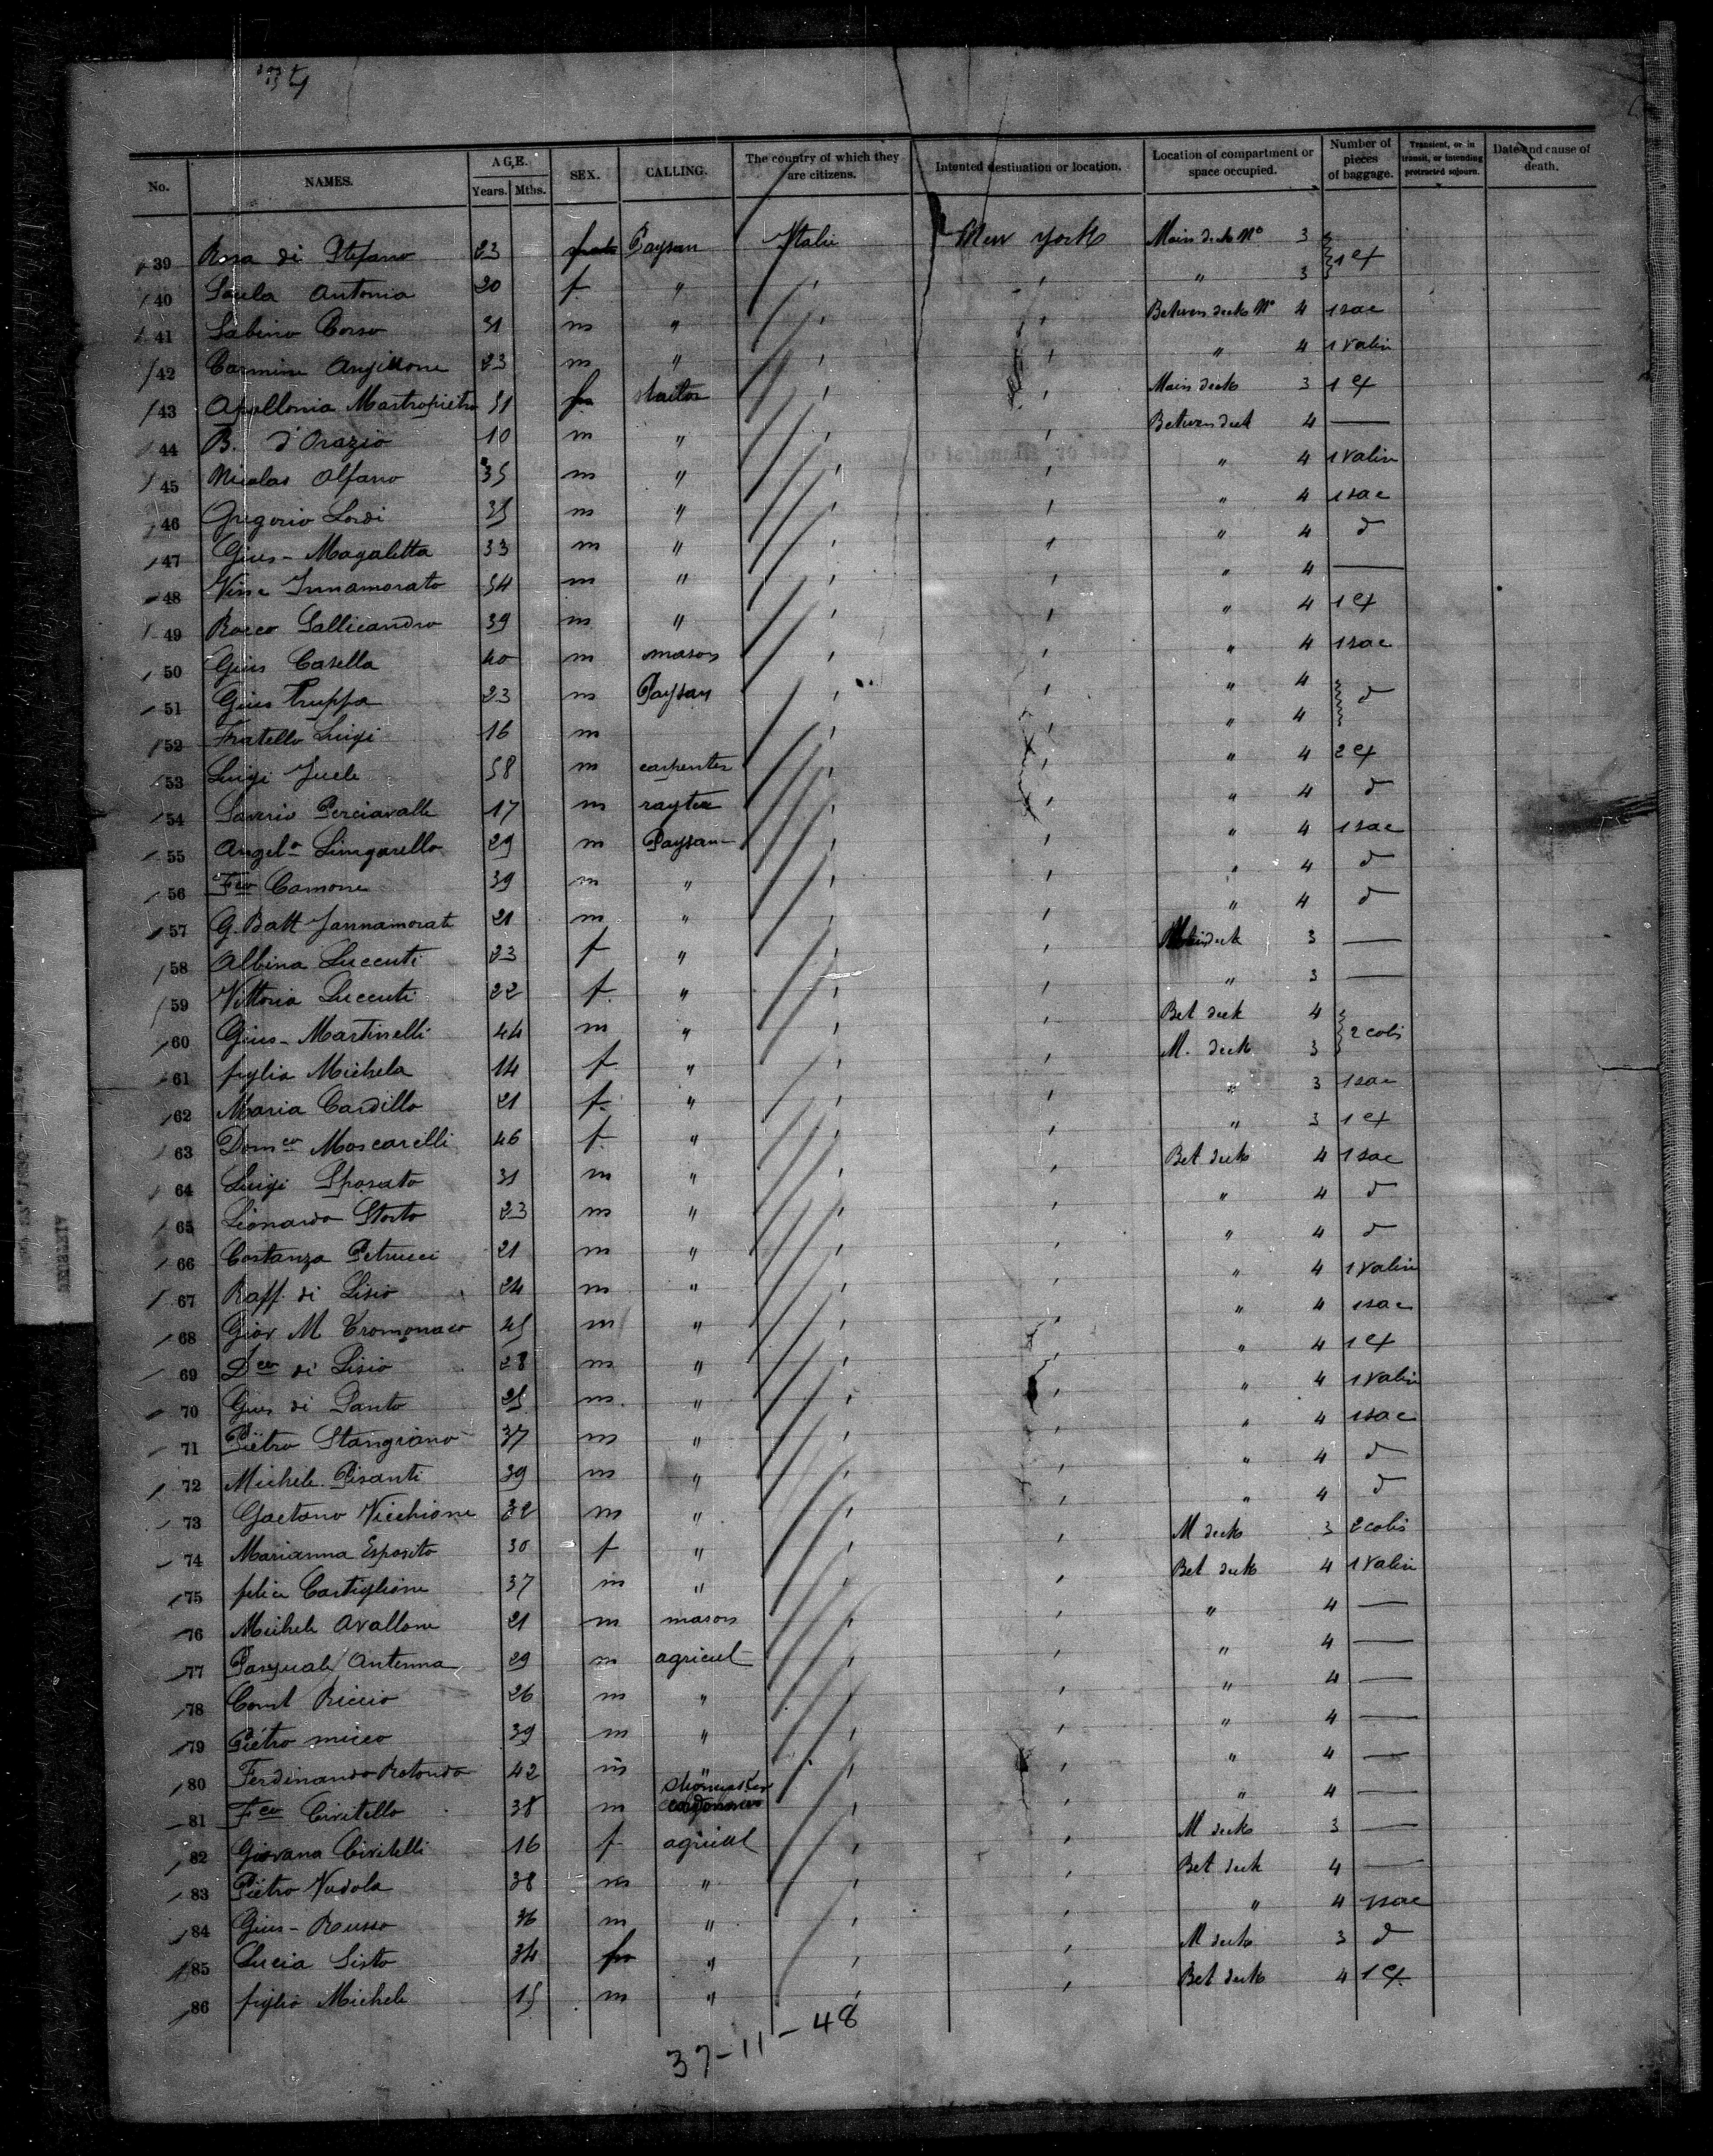 No. NAMES. AGE. Years. Mths. SEX. CALLING. The country of which they are citizens. Intented destination or location. Location of compartment or space occupied. Number of pieces of baggage. Transient, or in transit, or intending protracted sojourn. Date and cause of death.
39 Rosa di Stefano 23 Paysan Italie New York Main deck No 3 1 cf
40 Antonia 20 f " " " 3
41 Sabino Corso 31 m " " " Between deck No 4 1 sac
42 Carmine 23 m " " " " 4 1 valise
43 Apollonia Mastropietro 31 f " " Main deck 3 1 cf
44 B. d'Orazio 10 m " " " Between deck 4 —
45 Nicolas Alfano 35 m " " " " 4 1 valise
46 Gregorio Lordi 35 m " " " " 4 1 sac
47 Gius - Magaletta 33 m " " " " 4 d
48 Innamorato 54 m " " " " 4 —
49 Rocco Gallicandro 39 m " " " " 4 1 cf
50 Gius Casella 40 m mason " " " 4 1 sac
51 Gius Truppa 23 m Paysan " " " 4 d
52 Fratello Luigi 16 m " " " 4
53 Luigi Juele 58 m carpenter " " " 4 2 cf
54 Saverio Perciavalle 17 m " " " 4 d
55 Angelo 29 m Paysan " " " 4 1 sac
56 Fco Camone 39 m " " " " 4 d
57 G. Batt 21 m " " " " 4 d
58 Albina Luccuti 23 f " " " Main deck 3 —
59 Vittoria Luccuti 22 f " " " " 3 —
60 Gius - Martinelli 44 m " " " Bet deck 4 2 colis
61 figlia Michela 14 f " " " M. deck 3
62 Maria Cardillo 21 f " " " " 3 1 sac
63 Domco Moscarelli 46 f " " " " 3 1 cf
64 Luigi Sposato 31 m " " " Bet deck 4 1 sac
65 Lionardo Storto 23 m " " " " 4 d
66 Costanza Petrucci 21 m " " " " 4 d
67 Raff. di Lisio 24 m " " " " 4 1 valise
68 Giov M Cromonaco 45 m " " " " 4 1 sac
69 Dco di Lisio 28 m " " " " 4 1 cf
70 Gius di Santo 25 m " " " " 4 1 valise
71 Pietro Stangiano 37 m " " " " 4 1 sac
72 Michele Pisanti 39 m " " " " 4 d
73 Gaetano Vicchione 32 m " " " " 4 d
74 Marianna Esposito 30 f " " " M deck 3 2 colis
75 felice Castiglione 37 m " " " Bet deck 4 1 valise
76 Michele Avallone 21 m mason " " " 4 —
77 Pasquale Antenna 29 m agricul " " " 4 —
78 Riccio 26 m " " " " 4 —
79 Pietro 39 m " " " " 4 —
80 Ferdinando Rotondo 42 m " " " " 4 —
81 Fco Civitello 38 m " " " 4 —
82 Giovana Civitelli 16 f agricul " " M deck 3 —
83 Pietro Nudola 38 m " " " Bet deck 4 —
84 Gius - Russo 36 m " " " " 4 1 sac
85 Lucia Sisto 34 f " " " M deck 3 d
86 figlio Michele 15 m " " " Bet deck 4 1 cf
37-11-48